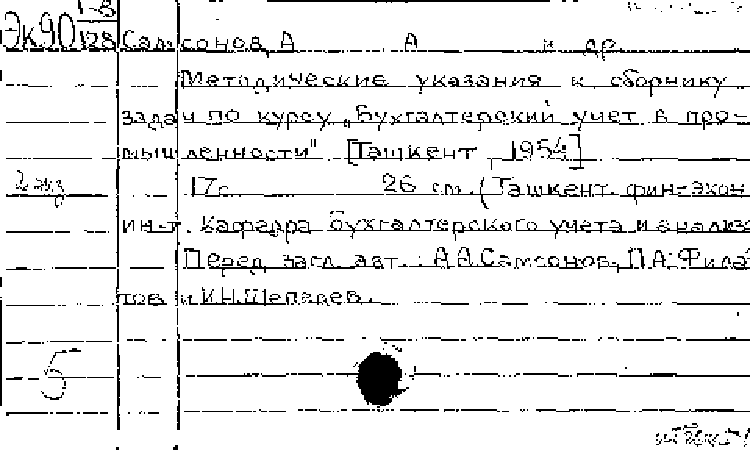 Эк90 1-8/128 Самсонов, А А и др.
Методические указания к сборнику
задач по курсу „Бухгалтерский учет в про-
мышленности" [Ташкент, 1954]
2 экз 17с. 26 см. (Ташкент. фин-экон
ин-т. Кафедра бухгалтерского учета и анализа
Перед загл. авт.: А.А.Самсонов, П.А.Фила
тов и И.Н.Шепелев.
5